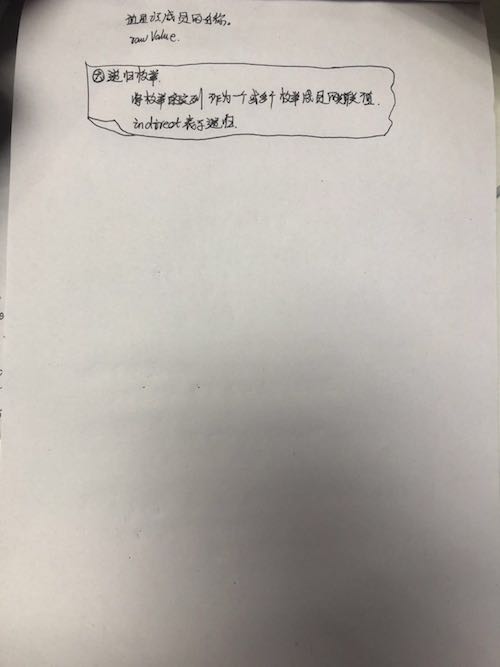 就是该成员的名称。
rawValue.
六 递归枚举.
将枚举的实例 作为一个或多个 枚举成员的关联值.
indirect 表示递归.